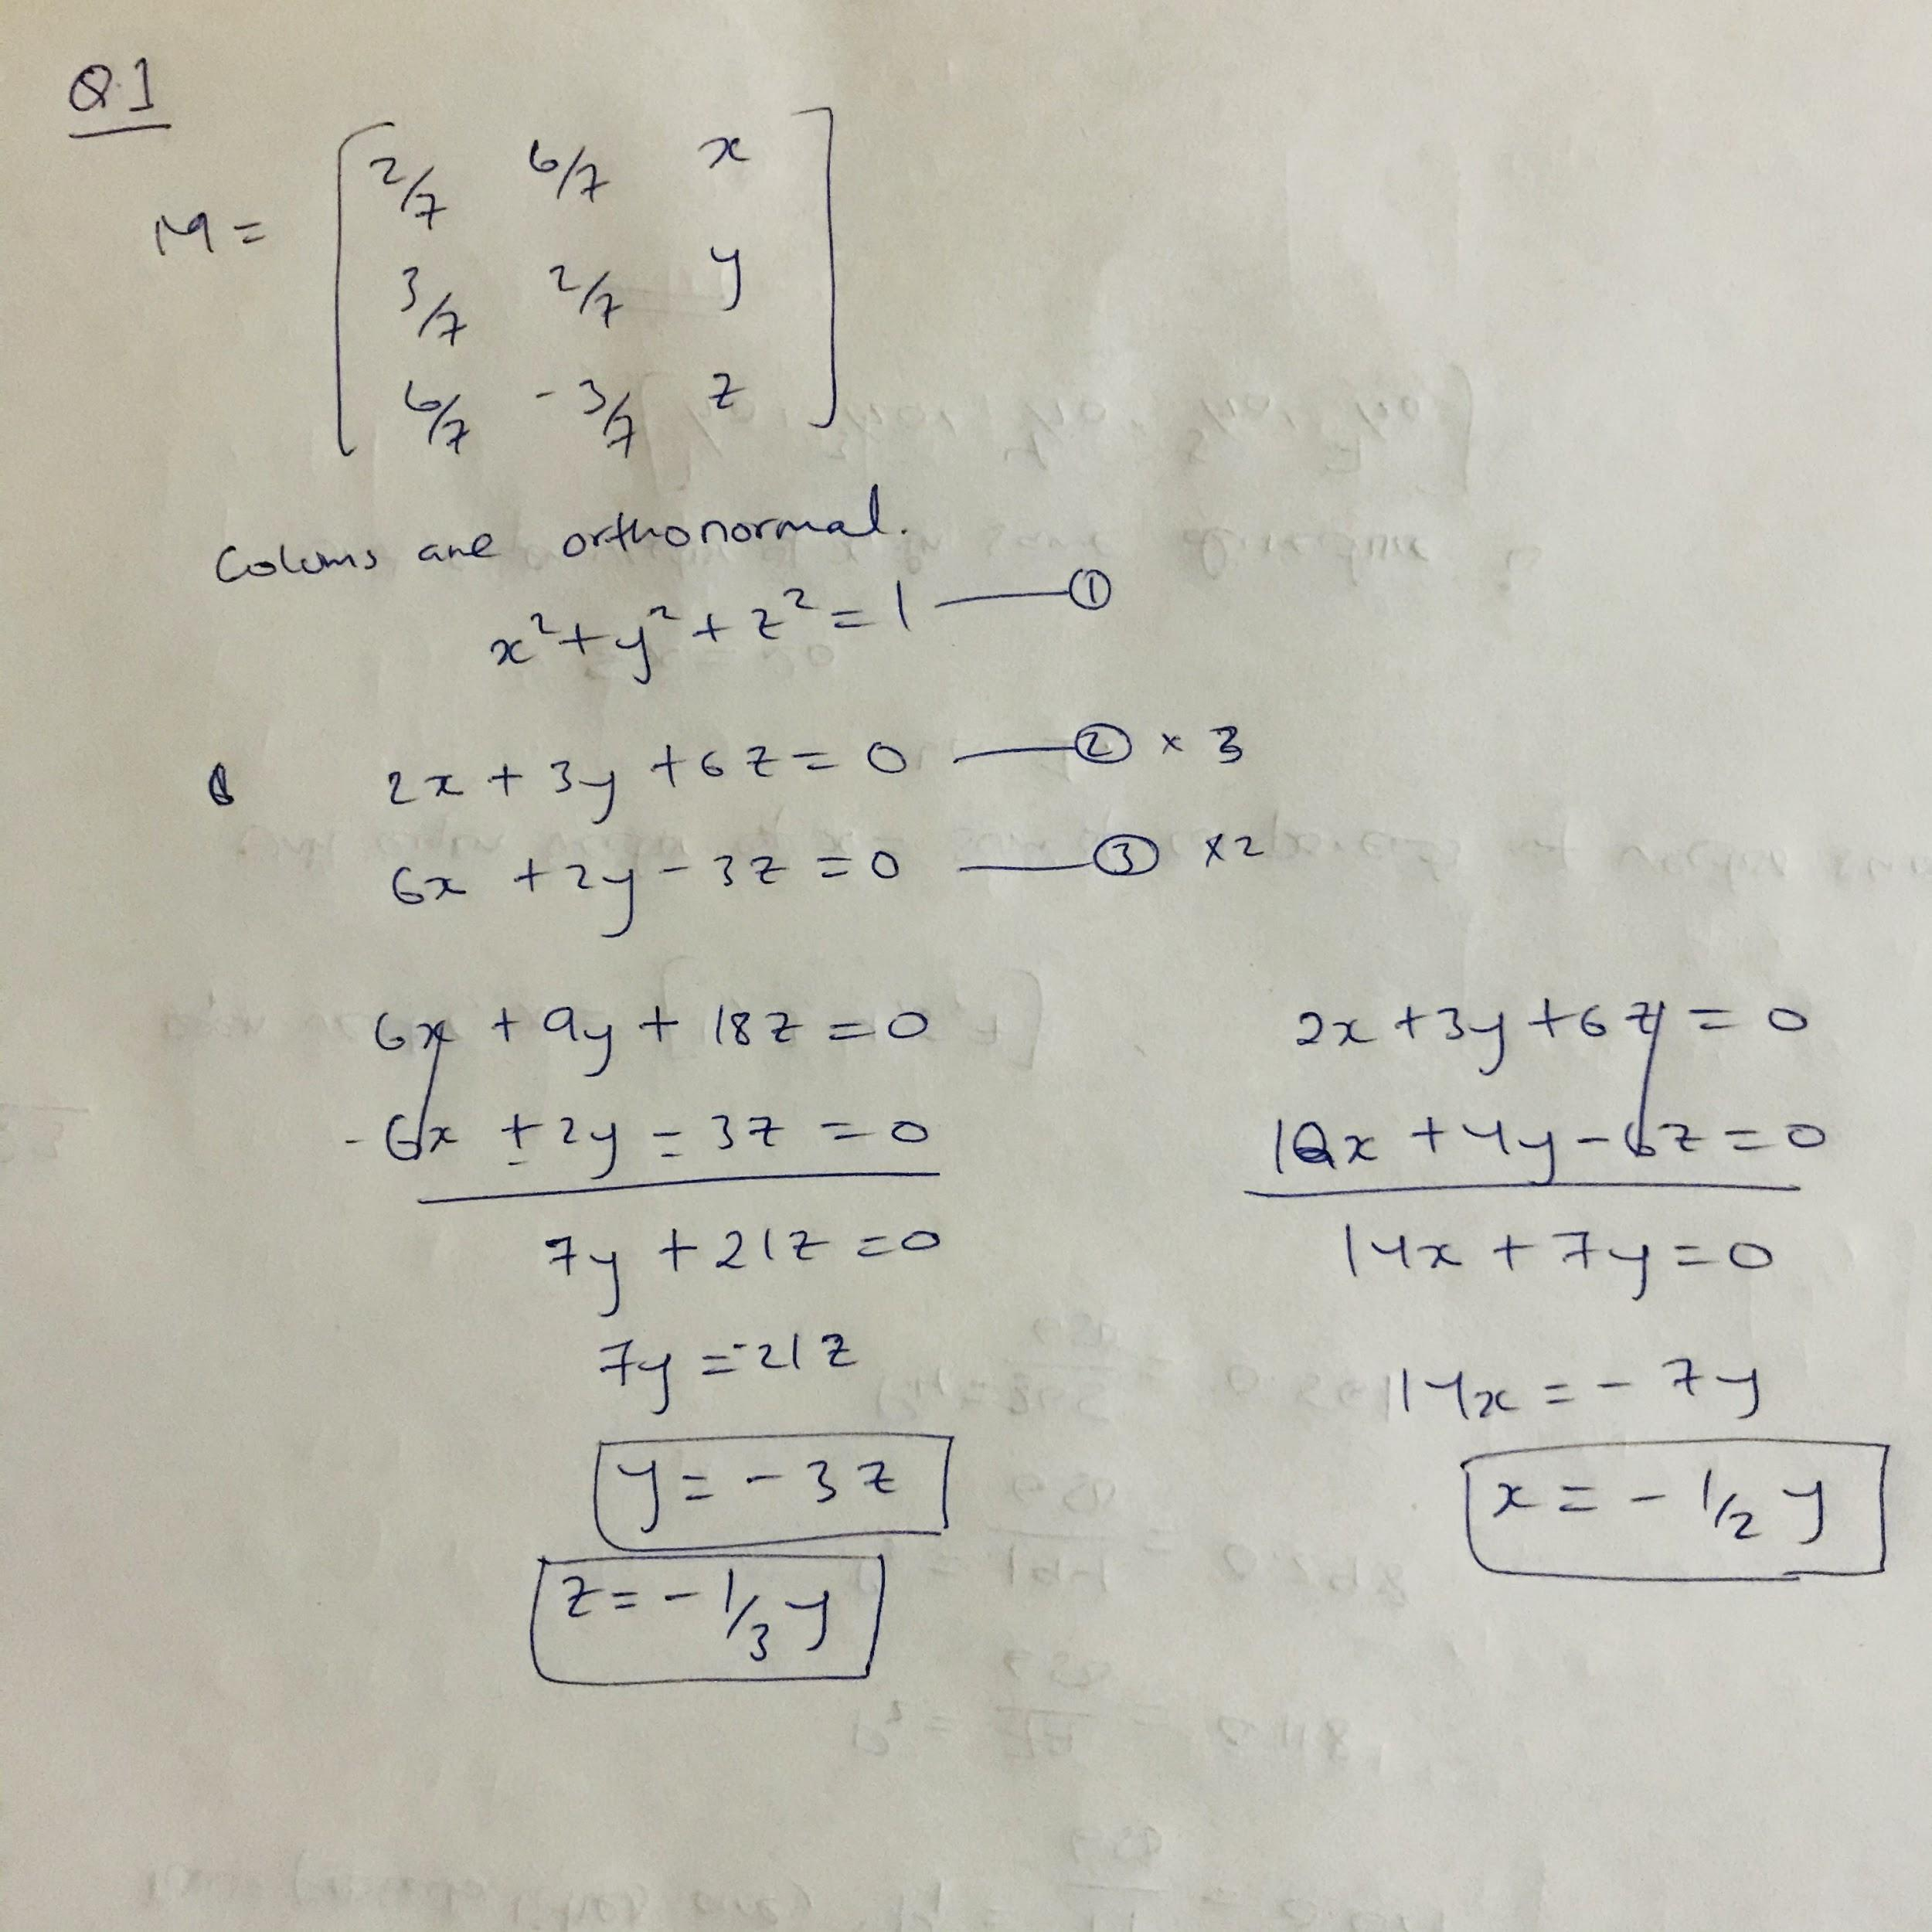 Q1
M = [ 2/7 6/7 x
3/7 2/7 y
6/7 -3/7 z ]
Colums are orthonormal.
x² + y² + z² = 1 — ①
2x + 3y + 6z = 0 — ② × 3
6x + 2y - 3z = 0 — ③ ×2
6x + 9y + 18z = 0
- 6x ± 2y = 3z = 0
7y + 21z = 0
7y = -21z
y = -3z
z = -1/3 y
2x + 3y + 6z = 0
12x + 4y - 6z = 0
14x + 7y = 0
14x = - 7y
x = - 1/2 y